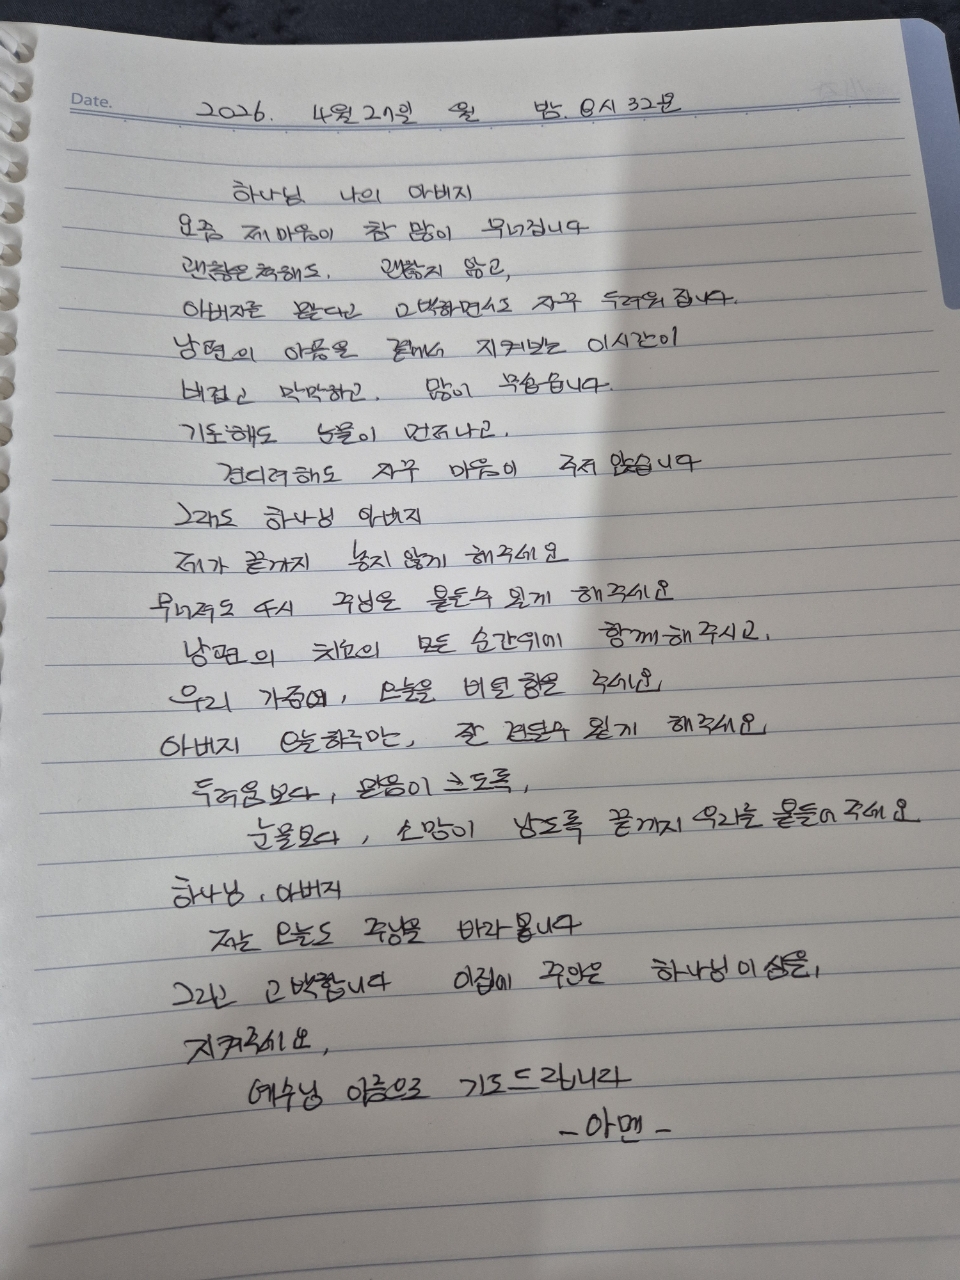 Date. 2026. 4월 27일 월 밤. 8시 32분
하나님 나의 아버지
요즘 제 마음이 참 많이 무너집니다
괜찮은척해도. 괜찮지 않고,
아버지를 믿는다고 고백하면서도 자꾸 두려워 집니다.
남편의 아픔을 곁에서 지켜보는 이시간이
버겁고 막막하고. 많이 무습습니다.
기도해도 눈물이 먼저나고.
견디려해도 자꾸 마음이 주저 앉습니다
그래도 하나님 아버지
제가 끝까지 놓지 않게 해주세요
무너져도 다시 주님을 붙든수 있게 해주세요
남편의 치료의 모든 순간위에 함께해 주시고.
우리 가족에, 오늘을 버틸 힘을 주세요,
아버지 오늘하루만, 잘 견딜수 있게 해주세요,
두려움보다, 믿음이 크도록,
눈물보다, 소망이 남도록 끝까지 우리를 붙들어 주세요
하나님, 아버지
저는 오늘도 주님을 바라 봅니다
그리고 고백합니다 이집에 주인은 하나님이
지켜주세요,
예수님 이름으로 기도드립니다
- 아멘 -